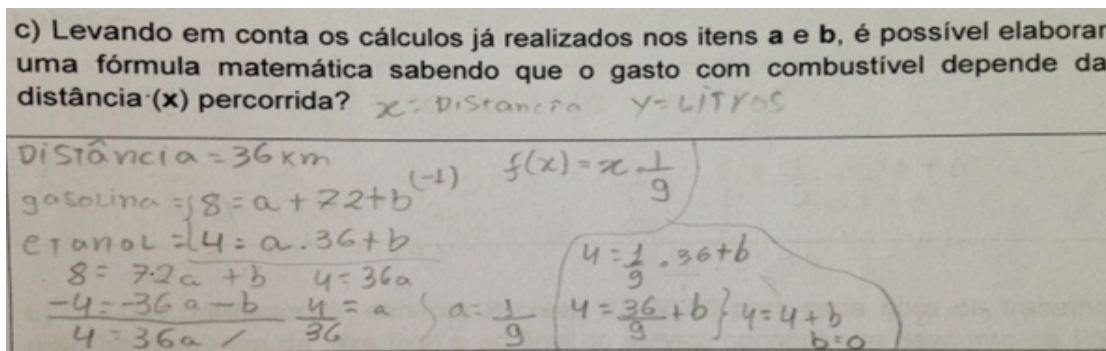 c) Levando em conta os cálculos já realizados nos itens a e b, é possível elaborar
uma fórmula matemática sabendo que o gasto com combustível depende da
distância (x) percorrida? x = Distancia y = LITROS
DISTância = 36 km
gasolina = { 8 = a + 72 + b (-1)
eTanoL = { 4 = a . 36 + b
8 = 72a + b
-4 = -36a - b
4 = 36a
4 = 36a
4/36 = a } a = 1/9
f(x) = x . 1/9
4 = 1/9 . 36 + b
4 = 36/9 + b } 4 = 4 + b
b = 0